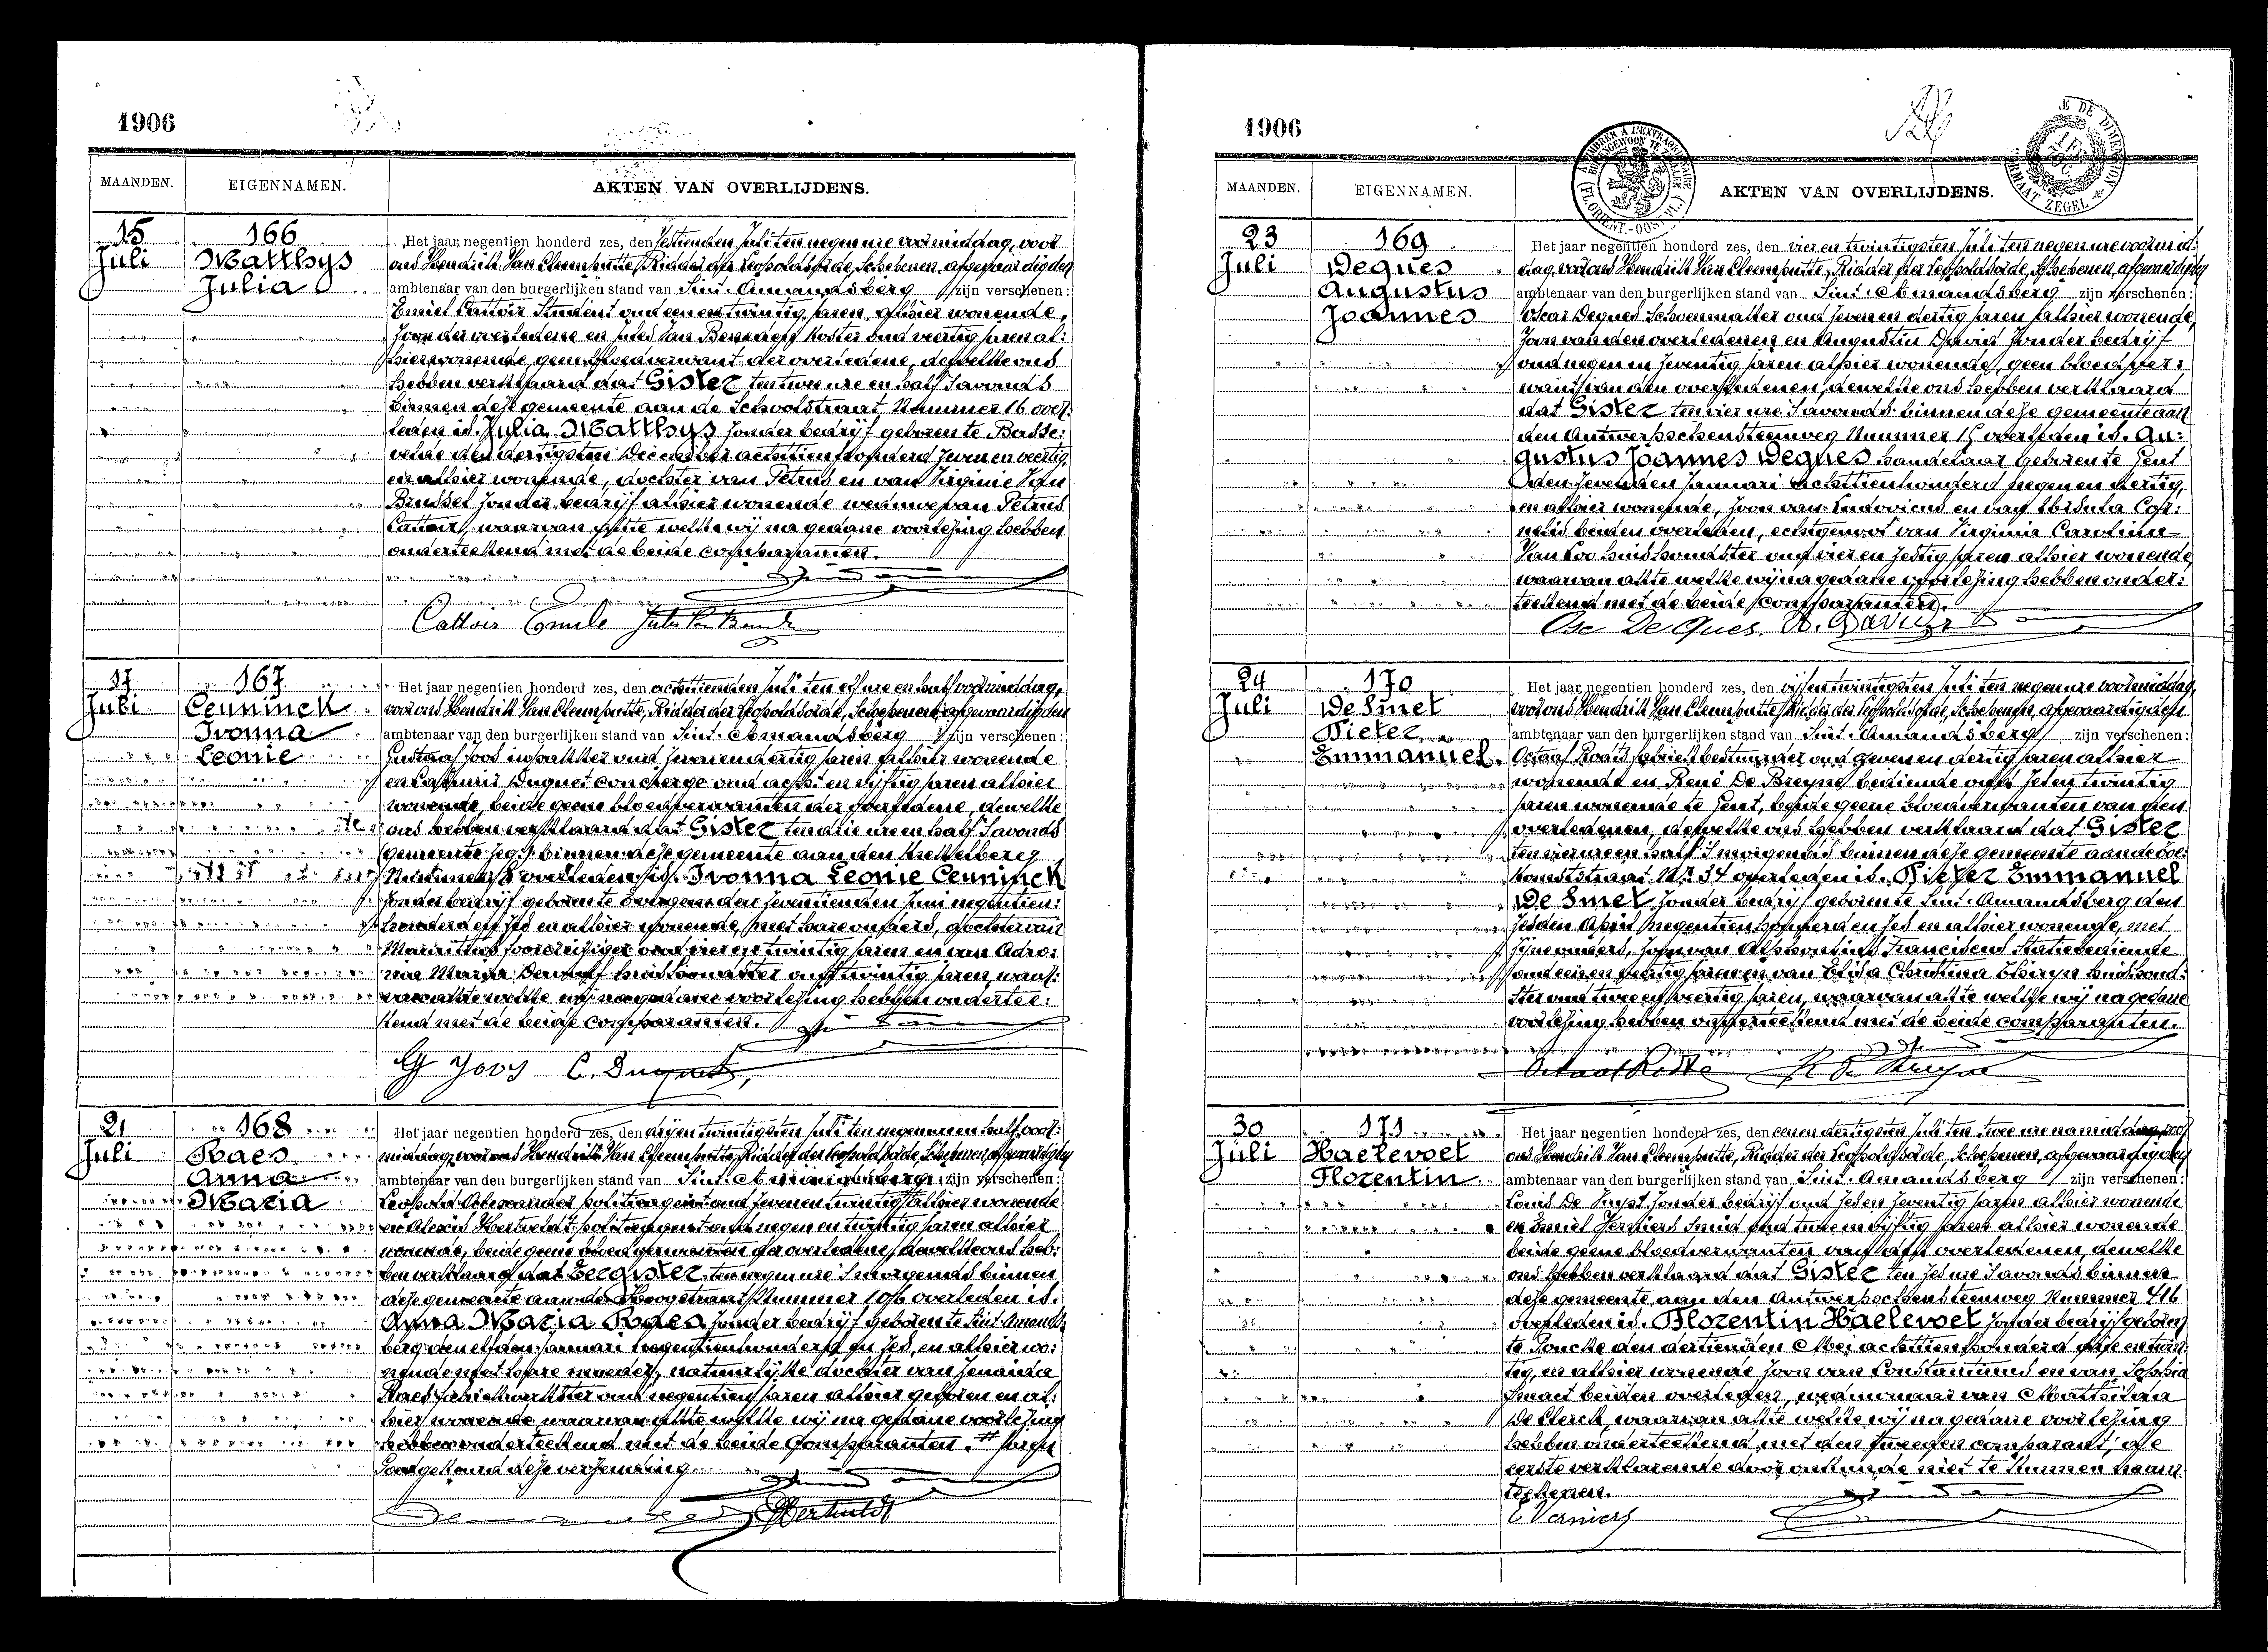 1906
MAANDEN. EIGENNAMEN. AKTEN VAN OVERLIJDENS.
15 Juli
166
Matthys
Julia
Het jaar negentien honderd zes, den zestienden Juli ten negen ure voormiddag, voor
ons Hendrik Van Cleemputte, Ridder der Leopoldsorde, Schepenen, afgevaardigden
ambtenaar van den burgerlijken stand van Sint-Amandsberg zijn verschenen:
Emiel Cattoir Student oud eenentwintig jaren, alhier wonende,
zoon der overledene en Jules Van Beneden Koster oud veertig jaren al:
hier wonende, geen bloedverwant der overledene, dewelke ons
hebben verklaard dat Gister ten twee ure en half 's avonds
binnen deze gemeente aan de Schoolstraat Nummer 16 over:
leden is. Julia Matthys zonder bedrijf geboren te Basse:
velde den dertigsten December achttienhonderd zeven en veertig
en alhier wonende, dochter van Petrus en van Virginie Van
Brussel zonder bedrijf alhier wonende weduwe van Petrus
Cattoir, waarvan akte welke wij na gedane voorlezing hebben
onderteekend met de beide comparanten.
Cattoir Emile
17 Juli
167
Ceuninck
Ivonna
Leonie
Het jaar negentien honderd zes, den achttienden Juli ten elf ure en half voormiddag,
voor ons Hendrik Van Cleemputte, Ridder der Leopoldsorde, Schepenen, afgevaardigden
ambtenaar van den burgerlijken stand van Sint-Amandsberg zijn verschenen:
Gustaaf Joos inpakker oud zeven en dertig jaren alhier wonende
en Casimir Duquet concierge oud acht en vijftig jaren alhier
wonende, beide geene bloedverwanten der overledene, dewelke
ons hebben verklaard dat Gister ten drie ure en half 's avonds
binnen deze gemeente aan den
Nummer overleden is. Ivonna Leonie Ceuninck
zonder bedrijf geboren te den zeventienden Juni negentien:
honderd en alhier wonende, met hare ouders, dochter van
oud vier en twintig jaren en van
Maria huishoudster oud twintig jaren, waar:
van akte welke wij na gedane voorlezing hebben ondertee:
kend met de beide comparanten.
G Joos C. Duquet
21 Juli
168
Raes
Anna
Maria
Het jaar negentien honderd zes, den drij en twintigsten Juli ten negen ure en half voor:
middag, voor ons Hendrik Van Cleemputte, Ridder der Leopoldsorde, Schepenen, afgevaardigden
ambtenaar van den burgerlijken stand van Sint-Amandsberg zijn verschenen:
Leopold politieagent oud zeven en twintig alhier wonende
en Alexis Hertveldt politieagent oud negen en twintig jaren alhier
wonende, beide geene bloedverwanten der overledene, dewelke ons heb:
ben verklaard dat Eergister ten negen ure 's morgends binnen
deze gemeente aan de Hoogstraat Nummer 106 overleden is.
Anna Maria Raes zonder bedrijf geboren te Sint-Amands:
berg den elfden Januari negentienhonderd en zes, en alhier wo:
nende met hare moeder, natuurlijke dochter van Zenaida
Raes fabriekwerkster oud negentien jaren alhier geboren en al:
hier wonende, waarvan akte welke wij na gedane voorlezing
hebben onderteekend met de beide Comparanten. # jaren
Goedgekeurd deze verzending.
Hertveldt
1906
MAANDEN. EIGENNAMEN. AKTEN VAN OVERLIJDENS.
23 Juli
169
Deques
Augustus
Joannes
Het jaar negentien honderd zes, den vier en twintigsten Juli ten negen ure voormid:
dag, voor ons Hendrik Van Cleemputte, Ridder der Leopoldsorde, Schepenen, afgevaardigden
ambtenaar van den burgerlijken stand van Sint-Amandsberg zijn verschenen:
Oscar Deques Schoenmaker oud zeven en dertig jaren alhier wonende,
zoon van den overledenen en Augustin David zonder bedrijf
oud negen en zeventig jaren alhier wonende, geen bloedver:
want van den overledenen, dewelke ons hebben verklaard
dat Gister ten vier ure 's avonds binnen deze gemeente aan
den Antwerpschensteenweg Nummer 15 overleden is. Au:
gustus Joannes Deques handelaar geboren te Gent
den zevenden Januari achttienhonderd negen en dertig,
en alhier wonende, zoon van Ludovicus en van Ursula Cor:
nelis beiden overleden, echtgenoot van Virginia Carolina
Van Loo huishoudster oud vier en zestig jaren alhier wonende,
waarvan akte welke wij na gedane voorlezing hebben onder:
teekend met de beide comparanten.
Osc. De Ques. A. David
24 Juli
170
De Smet
Pieter
Emmanuel.
Het jaar negentien honderd zes, den vijf en twintigsten Juli ten negen ure voormiddag,
voor ons Hendrik Van Cleemputte, Ridder der Leopoldsorde, Schepenen, afgevaardigden
ambtenaar van den burgerlijken stand van Sint-Amandsberg zijn verschenen:
Octaaf fabriekbestuurder oud zeven en dertig jaren alhier
wonende en René De Breyne bediende oud zes en twintig
jaren wonende te Gent, beide geene bloedverwanten van den
overledenen, dewelke ons hebben verklaard dat Gister
ten vier ure en half 's morgends binnen deze gemeente aan de
straat Nr 34 overleden is. Pieter Emmanuel
De Smet zonder bedrijf geboren te Sint-Amandsberg den
zesden April negentien honderd en zes en alhier wonende, met
zijne ouders, zoon van Alphonsius Franciscus Statiebediende
oud een en veertig jaren en van Eliza Christina Thiryn huishoud:
ster oud twee en veertig jaren, waarvan akte welke wij na gedane
voorlezing hebben onderteekend met de beide comparanten.
30 Juli
171
Haelevoet
Florentin
Het jaar negentien honderd zes, den eenen dertigsten Juli ten twee ure namiddag, voor
ons Hendrik Van Cleemputte, Ridder der Leopoldsorde, Schepenen, afgevaardigden
ambtenaar van den burgerlijken stand van Sint-Amandsberg zijn verschenen:
Louis De zonder bedrijf oud zes en zeventig jaren alhier wonende
en Emiel Verniers Smid oud twee en vijftig jaren alhier wonende
beide geene bloedverwanten van den overledenen, dewelke
ons hebben verklaard dat Gister ten zes ure 's avonds binnen
deze gemeente aan den Antwerpschensteenweg Nummer 416
overleden is. Florentin Haelevoet zonder bedrijf geboren
te Poucke den dertienden Mei achttienhonderd en twin:
tig, en alhier wonende zoon van Constantinus en van Sophia
beiden overleden, weduwnaar van Mathilda
De Clerck, waarvan akte welke wij na gedane voorlezing
hebben onderteekend, met den tweeden comparant, de
eerste verklarende door onkunde niet te kunnen naam:
teekenen.
E Verniers